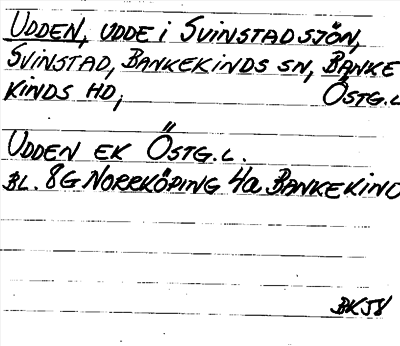 UDDEN, UDDE I SVINSTADSJÖN,
SVINSTAD, BANKEKINDS SN, BANKE
KINDS HD, ÖSTG.L
UDDEN EK ÖSTG.L.
BL. 8G NORRKÖPING 4a BANKEKIND
BK58